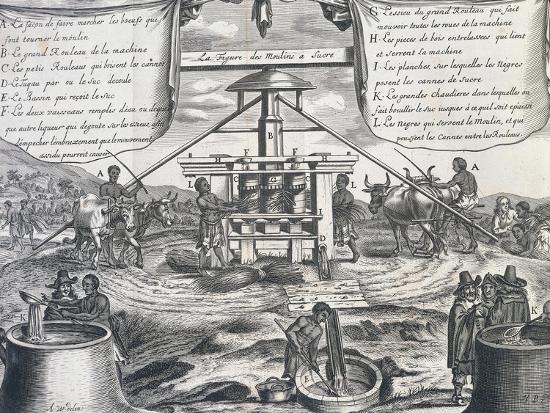 A. La façon de faire marcher les bœufs qui
font tourner le moulin
B. Le grand Rouleau de la machine
C. Les petis Rouleaux qui brisent les cannes
D. Le tuyau par ou le suc découle
E. Le Bassin qui reçoit le suc
F. Les deux vaisseaux remplis d'eau ou de quel
que autre liqueur qui dégoute sur les essieux, afin
d'empêcher l'embrazement que le mouvement
assidu pourroit causer
La Figure des Moulins a Sucre
G. L'essieu du grand Rouleau qui fait
mouvoir toutes les roues de la machine
H. Les pieces de bois entrelassées qui lient
et serrent la machine
I. Les planches, sur lesquelles les Negres
posent les cannes de Sucre
K. Les grandes Chaudieres dans lesquelles on
fait bouillir le suc jusques à ce qu'il soit épaissi
L. Les Negres qui servent le Moulin, et qui
poussent les Cannes entre les Rouleaux.
A
B
A
F
F
L
C
G
C
L
H
D
K
I
K
E
A. W. delin.